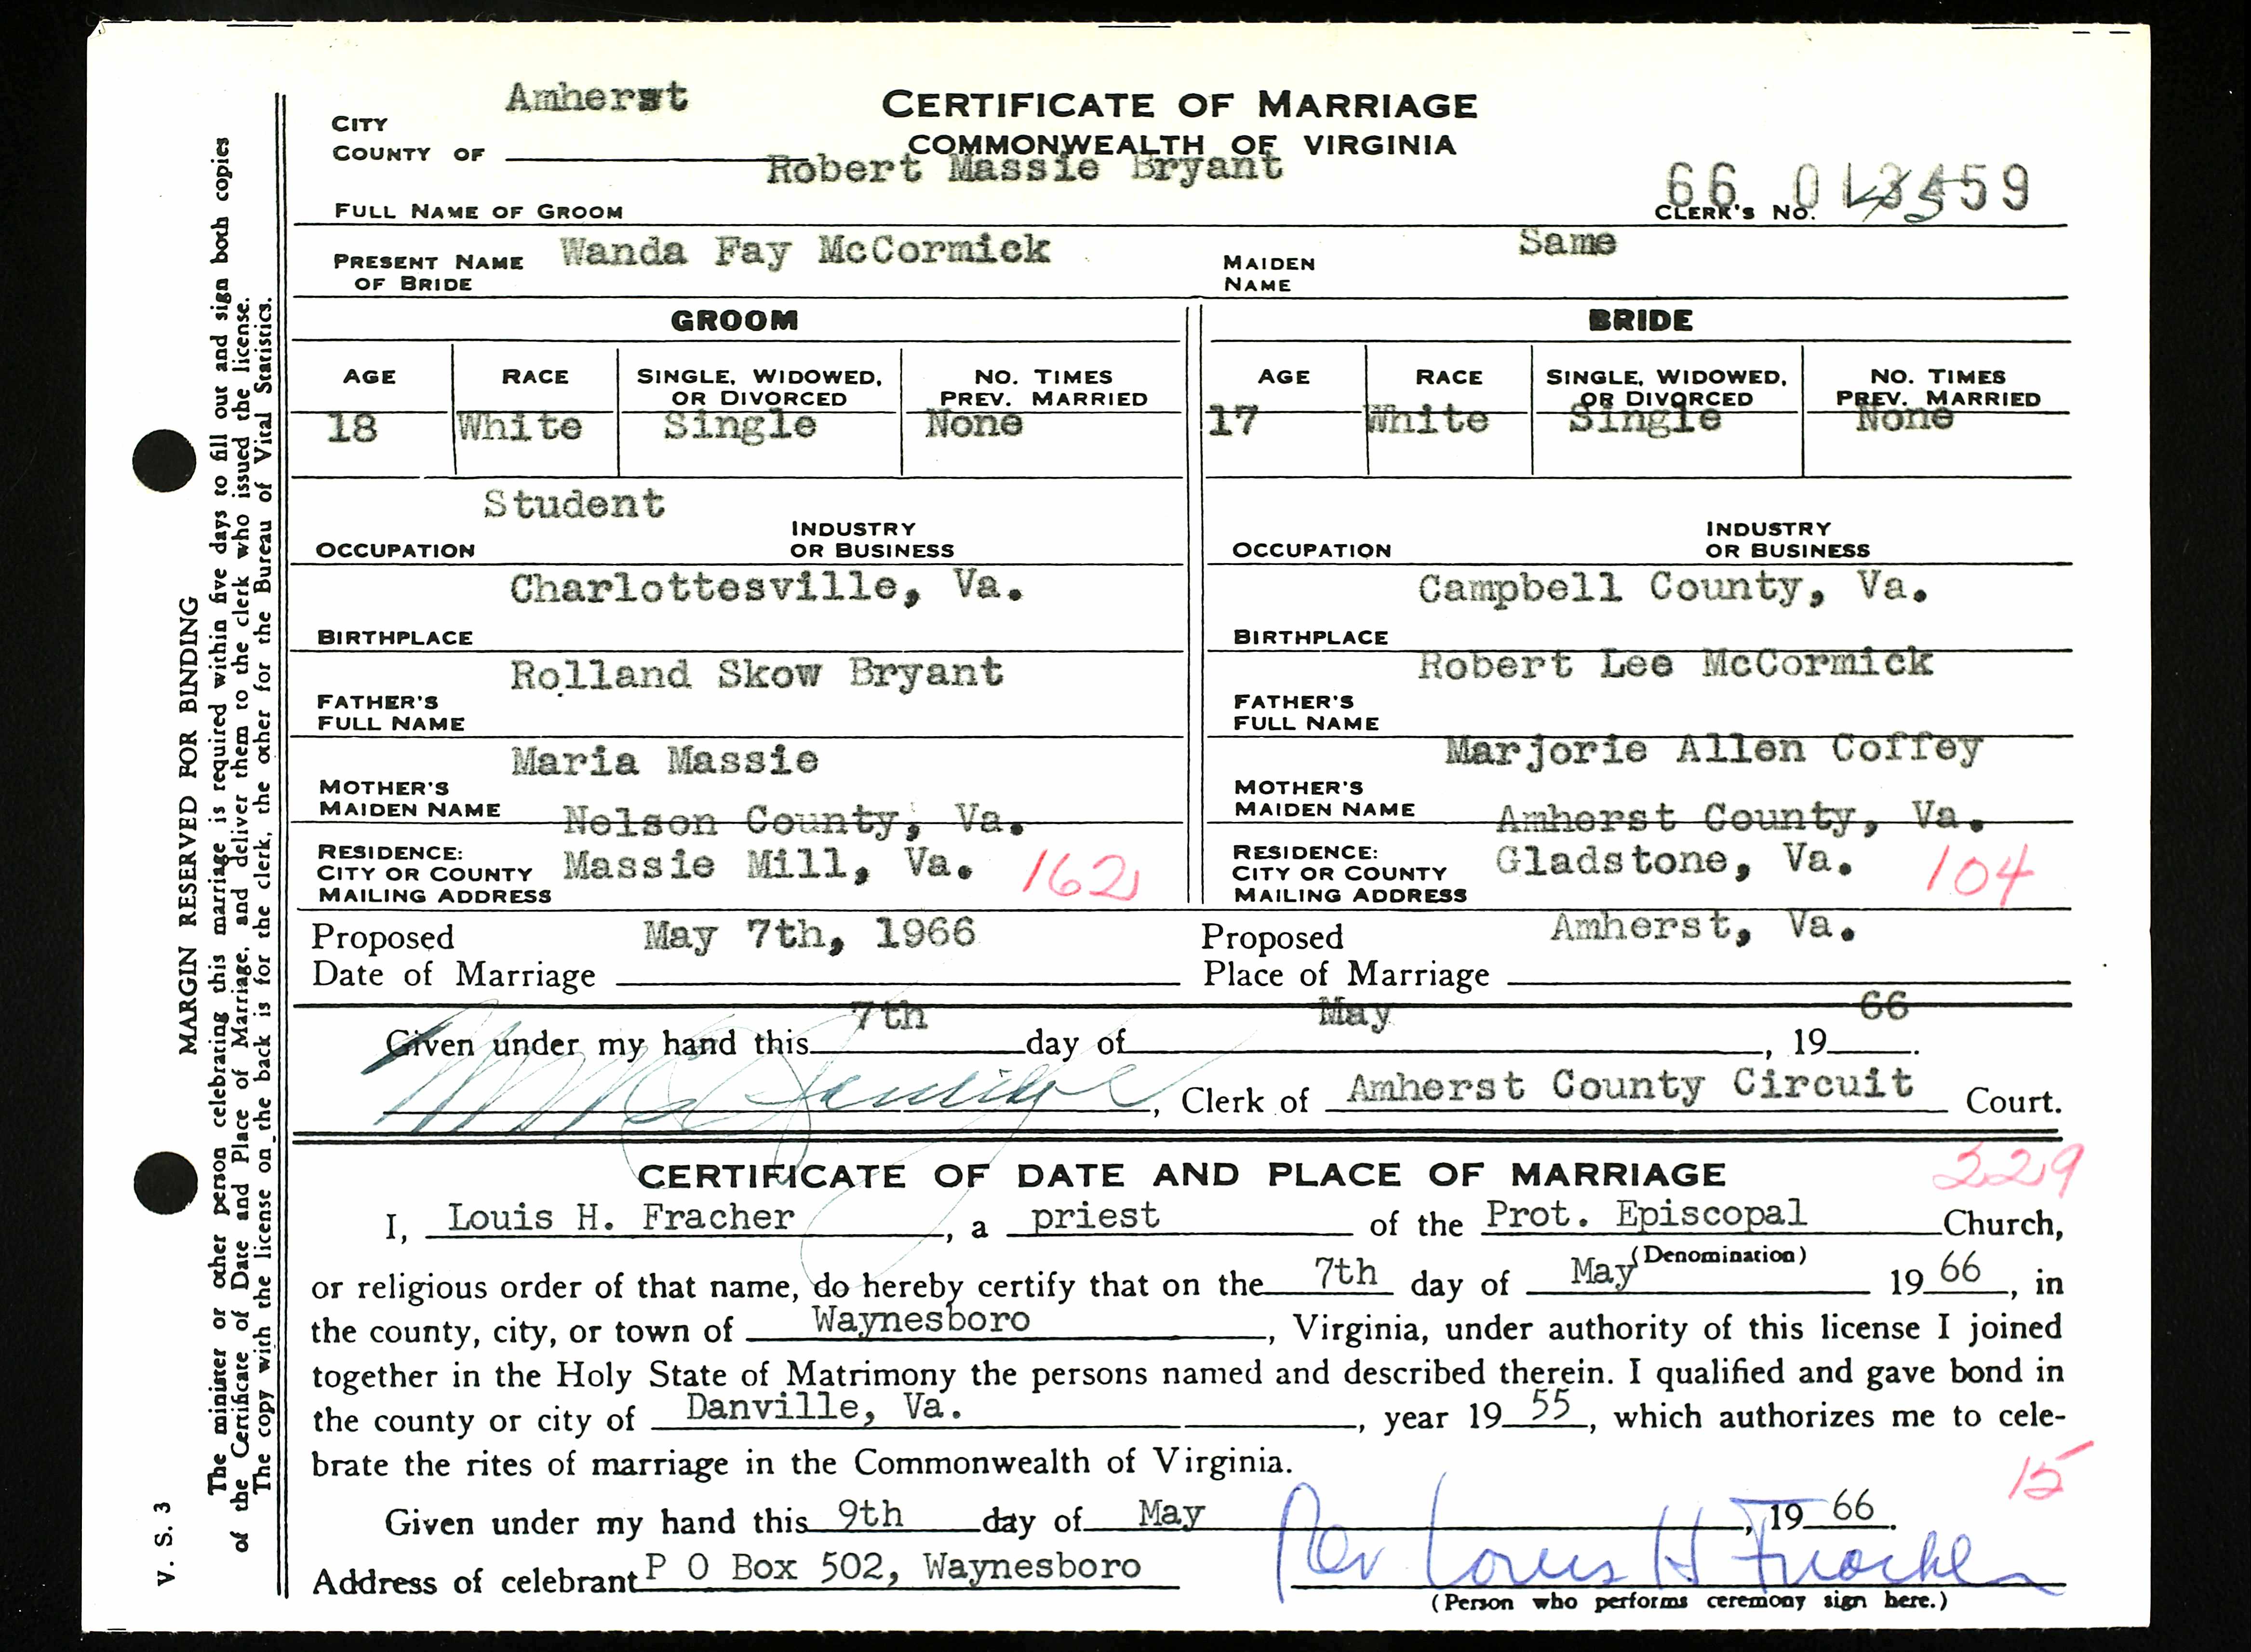 Amherst
CERTIFICATE OF MARRIAGE
CITY
COUNTY OF
COMMONWEALTH OF VIRGINIA
Robert Massie Bryant
66 0 59
FULL NAME OF GROOM
CLERK'S NO.
PRESENT NAME OF BRIDE Wanda Fay McCormick MAIDEN NAME Same
GROOM BRIDE
AGE RACE SINGLE, WIDOWED, OR DIVORCED NO. TIMES PREV. MARRIED AGE RACE SINGLE, WIDOWED, OR DIVORCED NO. TIMES PREV. MARRIED
18 White Single None 17 White Single None
Student
OCCUPATION INDUSTRY OR BUSINESS OCCUPATION INDUSTRY OR BUSINESS
Charlottesville, Va. Campbell County, Va.
BIRTHPLACE BIRTHPLACE
Rolland Skow Bryant Robert Lee McCormick
FATHER'S FULL NAME FATHER'S FULL NAME
Maria Massie Marjorie Allen Coffey
MOTHER'S MAIDEN NAME MOTHER'S MAIDEN NAME
Nelson County, Va. Amherst County, Va.
RESIDENCE: CITY OR COUNTY MAILING ADDRESS Massie Mill, Va. 162 RESIDENCE: CITY OR COUNTY MAILING ADDRESS Gladstone, Va. 104
Proposed Date of Marriage May 7th, 1966 Proposed Place of Marriage Amherst, Va.
Given under my hand this 7th day of May, 19 66.
, Clerk of Amherst County Circuit Court.
CERTIFICATE OF DATE AND PLACE OF MARRIAGE 229
I, Louis H. Fracher, a priest of the Prot. Episcopal Church,
(Denomination)
or religious order of that name, do hereby certify that on the 7th day of May 19 66, in
the county, city, or town of Waynesboro, Virginia, under authority of this license I joined
together in the Holy State of Matrimony the persons named and described therein. I qualified and gave bond in
the county or city of Danville, Va., year 19 55, which authorizes me to cele-
brate the rites of marriage in the Commonwealth of Virginia.
15
Given under my hand this 9th day of May, 19 66.
Address of celebrant P O Box 502, Waynesboro Rev Louis H Fracher
(Person who performs ceremony sign here.)
V. S. 3
MARGIN RESERVED FOR BINDING
The minister or other person celebrating this marriage is required within five days to fill out and sign both copies
of the Certificate of Date and Place of Marriage, and deliver them to the clerk who issued the license.
The copy with the license on the back is for the clerk, the other for the Bureau of Vital Statistics.